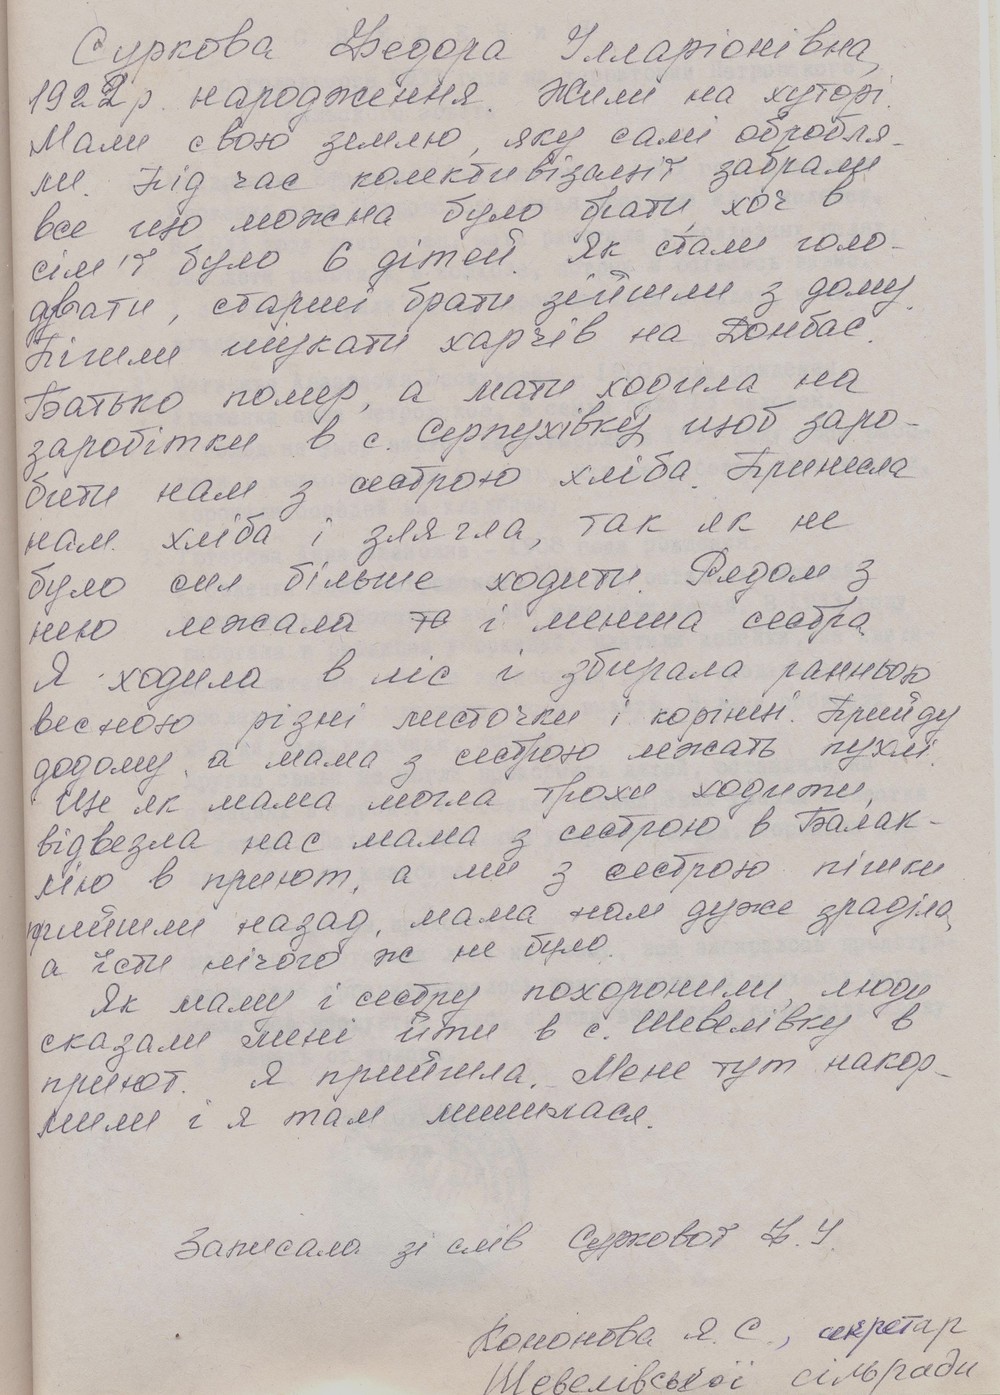 Суркова Федора Ілларіонівна,
1922 р. народження. Жили на хуторі.
Мали свою землю, яку самі обробля-
ли. Під час колективізації забрали
все що можна було брати, хоч в
сім'ї було 6 дітей. Як стали голо-
двати, старші брати зійшли з дому.
Пішли шукати харчів на Донбас.
Батько помер, а мати ходила на
заробітки в с. Серпухівку, щоб заро-
бити нам з сестрою хліба. Принесла
нам хліба і злягла, так як не
було сил більше ходити. Рядом з
нею лежала та і менша сестра.
Я ходила в ліс і збирала ранньою
весною різні листочки і корінці. Прийду
додому, а мама з сестрою лежать пухлі.
Ще як мама могла трохи ходити,
відвезла нас мама з сестрою в Балак-
лію в приют, а ми з сестрою пішки
прийшли назад, мама нам дуже зраділа,
а їсти нічого ж не було.
Як маму і сестру похоронили, люди
сказали мені йти в с. Шевелівку в
приют. Я прийшла. Мене тут накор-
мили і я там лишилася.
Записала зі слів Суркової Ф. І.
Кононова Я. С., секретар
Шевелівської сільради